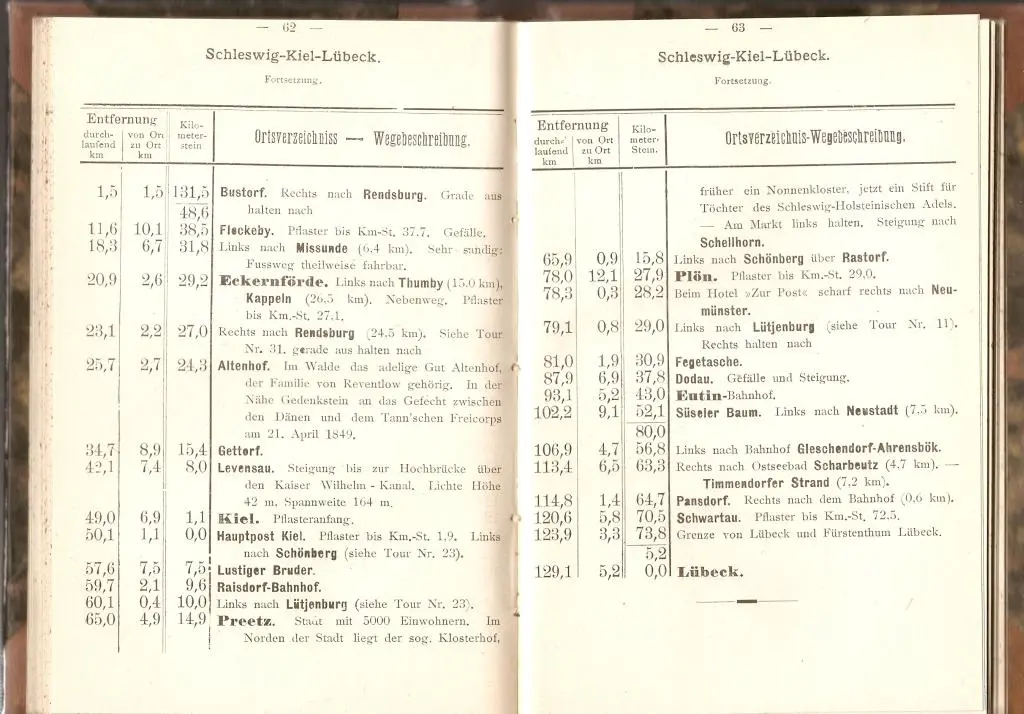 — 62 —
Schleswig-Kiel-Lübeck.
Fortsetzung.
Entfernung
durch-laufend km
von Ort zu Ort km
Kilo-meter-stein
Ortsverzeichniss — Wegebeschreibung.
1,5 1,5 131,5 Bustorf. Rechts nach Rendsburg. Grade aus
48,6 halten nach
11,6 10,1 38,5 Fleckeby. Pflaster bis Km-St. 37.7. Gefälle.
18,3 6,7 31,8 Links nach Missunde (6,4 km). Sehr sandig;
Fussweg theilweise fahrbar.
20,9 2,6 29,2 Eckernförde. Links nach Thumby (15.0 km),
Kappeln (26,5 km). Nebenweg. Pflaster
bis Km.-St. 27.1.
23,1 2,2 27,0 Rechts nach Rendsburg (24.5 km). Siehe Tour
Nr. 31. gerade aus halten nach
25,7 2,7 24,3 Altenhof. Im Walde das adelige Gut Altenhof,
der Familie von Reventlow gehörig. In der
Nähe Gedenkstein an das Gefecht zwischen
den Dänen und dem Tann'schen Freicorps
am 21. April 1849.
34,7 8,9 15,4 Gettorf.
42,1 7,4 8,0 Levensau. Steigung bis zur Hochbrücke über
den Kaiser Wilhelm - Kanal. Lichte Höhe
42 m, Spannweite 164 m.
49,0 6,9 1,1 Kiel. Pflasteranfang.
50,1 1,1 0,0 Hauptpost Kiel. Pflaster bis Km.-St. 1,9. Links
nach Schönberg (siehe Tour Nr. 23).
57,6 7,5 7,5 Lustiger Bruder.
59,7 2,1 9,6 Raisdorf-Bahnhof.
60,1 0,4 10,0 Links nach Lütjenburg (siehe Tour Nr. 23).
65,0 4,9 14,9 Preetz. Stadt mit 5000 Einwohnern. Im
Norden der Stadt liegt der sog. Klosterhof,
— 63 —
Schleswig-Kiel-Lübeck.
Fortsetzung.
Entfernung
durch-laufend km
von Ort zu Ort km
Kilo-meter-Stein.
Ortsverzeichnis-Wegebeschreibung.
früher ein Nonnenkloster, jetzt ein Stift für
Töchter des Schleswig-Holsteinischen Adels.
— Am Markt links halten. Steigung nach
Schellhorn.
65,9 0,9 15,8 Links nach Schönberg über Rastorf.
78,0 12,1 27,9 Plön. Pflaster bis Km.-St. 29,0.
78,3 0,3 28,2 Beim Hotel »Zur Post« scharf rechts nach Neu-
münster.
79,1 0,8 29,0 Links nach Lütjenburg (siehe Tour Nr. 11).
Rechts halten nach
81,0 1,9 30,9 Fegetasche.
87,9 6,9 37,8 Dodau. Gefälle und Steigung.
93,1 5,2 43,0 Eutin-Bahnhof.
102,2 9,1 52,1 Süseler Baum. Links nach Neustadt (7,5 km).
80,0
106,9 4,7 56,8 Links nach Bahnhof Gleschendorf-Ahrensbök.
113,4 6,5 63,3 Rechts nach Ostseebad Scharbeutz (4,7 km). —
Timmendorfer Strand (7,2 km).
114,8 1,4 64,7 Pansdorf. Rechts nach dem Bahnhof (0,6 km).
120,6 5,8 70,5 Schwartau. Pflaster bis Km.-St. 72,5.
123,9 3,3 73,8 Grenze von Lübeck und Fürstenthum Lübeck.
5,2
129,1 5,2 0,0 Lübeck.